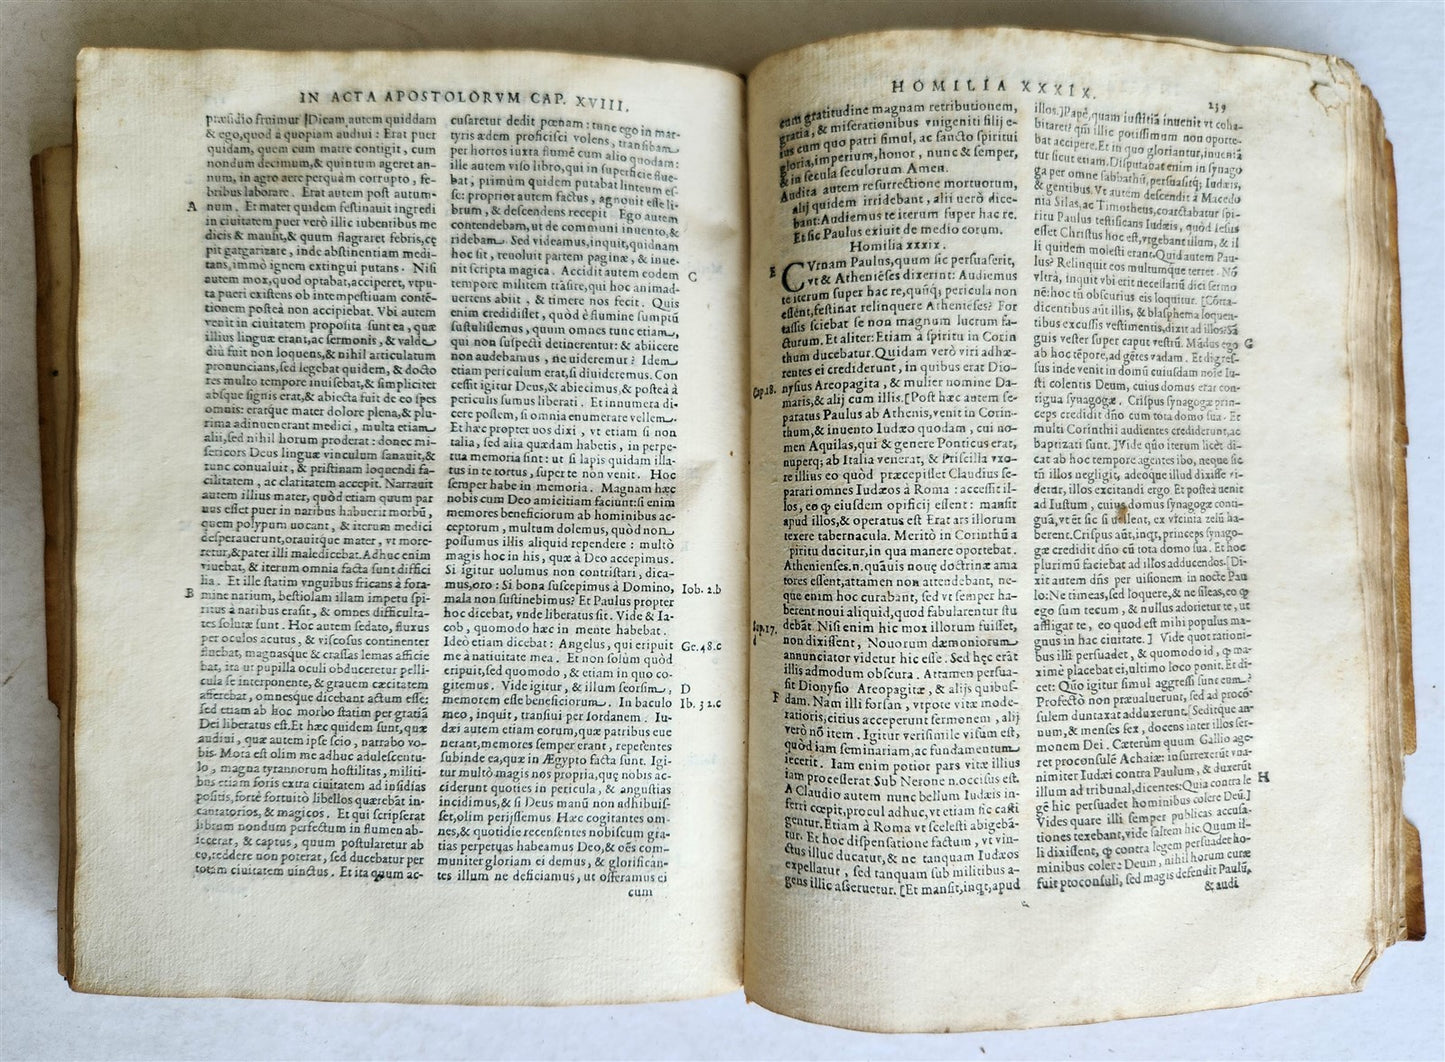 IN ACTA APOSTOLORVM CAP. XVIII.
præsidio fruimur Dicam autem quiddam
& ego, quod à quopiam audiui : Erat puer
quidam, quem cum matre contigit , cum
nondum decimum, & quintum ageret an-
num, in agro aere perquàm corrupto , fe-
bribus laborare . Erat autem post autum-
A
num . Et mater quidem festinauit ingredi
in ciuitatem puer verò illic iubentibus me
dicis & mansit, & quum flagraret febris, cę
pit gargarizate , inde abstinentiam medi-
tans, immò ignem extingui putans . Nisi
autem mox, quod optabat, acciperet, vtpu-
ta pueri existens ob intempestiuam contē-
tionem posteà non accipiebat. Vbi autem
venit in ciuitatem proposita sunt ea , quæ
illius linguæ erant, ac sermonis , & valde
diu fuit non loquens, & nihil articulatum
pronuncians, sed legebat quidem, & docto
res multo tempore inuisebat, & simpliciter
absque signis erat, & abiecta fuit de eo spes
omnis: eratque mater dolore plena, & plu-
rima adinuenerant medici , multa etiam
alii, sed nihil horum proderat : donec mi-
sericors Deus linguæ vinculum sanauit, &
tunc conualuit , & pristinam loquendi fa-
cilitatem , ac claritatem accepit. Narrauit
autem illius mater, quòd etiam quum par
uus esset puer in naribus habuerit morbū ,
quem polypum uocant , & iterum medici
desperauerunt, orauitque mater , vt more-
retur, & pater illi maledicebat. Adhuc enim
viuebat, & iterum omnia facta sunt diffici
lia . Et ille statim vnguibus fricans à fora-
B
mine narium, bestiolam illam impetu spi-
ritus à naribus erasit , & omnes difficulta-
tes solutæ sunt . Hoc autem sedato, fluxus
per oculos acutus , & viscosus continenter
fluebat, magnasque & crassas lemas afficie
bat, ita ut pupilla oculi obduceretur pelli
cula se interponente, & grauem cæcitatem
afferebat , omnesque dicebant actum esse:
sed etiam ab hoc morbo statim per gratiā
Dei liberatus est. Et hæc quidem sunt, quæ
audiui , quæ autem ipse scio , narrabo vo-
bis. Mota est olim me adhuc adulescentu-
lo , magna tyrannorum hostilitas , militi-
bus etiam foris extra ciuitatem ad insidias
positis, fortè fortuitò libellos quærebāt in-
cantatorios, & magicos . Et qui scripserat
librum nondum perfectum in flumen ab-
iecerat , & captus , quum postularetur ab
eo, reddere non poterat, sed ducebatur per
totam ciuitatem vinctus . Et ita quum ac-
cusaretur dedit pœnam : tunc ego in mar-
tyris ædem proficisci volens , transibam
per hortos iuxta flumē cum alio quodam:
ille autem viso libro, qui in superficie flue-
bat , primùm quidem putabat linteum es-
se: proprior autem factus , agnouit esse li-
brum , & descendens recepit . Ego autem
contendebam, ut de communi inuento, &
ridebam . Sed videamus, inquit, quidnam
hoc sit , reuoluit partem paginæ , & inue-
nit scripta magica . Accidit autem eodem
C
tempore militem trāsire, qui hoc animad-
uertens abiit , & timere nos fecit . Quis
enim credidisset , quòd è flumine sumptū
sustulissemus , quum omnes tunc etiam ,
qui non suspecti detinerentur: & abiicere
non audebamus , ne uideremur ? Idem
etiam periculum erat, si diuideremus. Con
cessit igitur Deus, & abiecimus, & posteà à
periculis sumus liberati . Et innumera di-
cere possem, si omnia enumerare vellem .
Et hæc propter uos dixi , vt etiam si non
talia , sed alia quædam habetis , in perpe-
tua memoria sint : ut si lapis quidam illa-
tus in te tortus , super te non venit . Hoc
semper habe in memoria . Magnam hæc
nobis cum Deo amicitiam faciunt: si enim
memores beneficiorum ab hominibus ac-
ceptorum , multum dolemus, quòd non
possumus illis aliquid rependere : multò
magis hoc in his, quæ à Deo accepimus.
Si igitur uolumus non contristari , dica-
mus, oro : Si bona suscepimus à Domino,
Iob. 2.b
mala non sustinebimus? Et Paulus propter
hoc dicebat, vnde liberatus sit. Vide & Ia-
cob , quomodo hæc in mente habebat.
Ideò etiam dicebat : Angelus, qui eripuit
Ge. 48.c
me à natiuitate mea . Et non solùm quòd
eripuit, sed quomodo , & etiam in quo co-
gitemus . Vide igitur , & illum seorsim ,
D
memorem esse beneficiorum . In baculo
Ib. 32.c
meo , inquit , transiui per Iordanem . Iu-
dæi autem etiam eorum, quæ patribus eue
nerant, memores semper erant , repetentes
subinde ea, quæ in Ægypto facta sunt. Igi-
tur multò magis nos propria, quę nobis ac-
ciderunt quoties in pericula , & angustias
incidimus, & si Deus manū non adhibuis-
set, olim perijssemus . Hæc cogitantes om-
nes, & quotidie recensentes nobiscum gra-
tias perpetuas habeamus Deo, & oēs com-
muniter gloriam ei demus , & glorifican-
tes illum ne deficiamus, ut offeramus ei
cum
HOMILIA XXXIX.
239
cum gratitudine magnam retributionem,
gratia , & miserationibus vnigeniti filij e-
ius cum quo patri simul, ac sancto spiritui
gloria, imperium, honor , nunc & semper,
& in secula seculorum Amen.
Audita autem resurrectione mortuorum,
alij quidem irridebant , alii uerò dice-
bant: Audiemus te iterum super hac re.
Et sic Paulus exiuit de medio eorum.
Homilia xxxix.
E
CVrnam Paulus, quum sic persuaserit,
vt & Atheniēses dixerint: Audiemus
te iterum super hac re, quāq; pericula non
essent, festinat relinquere Athenieses? For
tassis sciebat se non magnum lucrum fa-
cturum. Et aliter: Etiam à spiritu in Corin
thum ducebatur. Quidam verò viri adhæ-
rentes ei crediderunt , in quibus erat Dio-
nysius Areopagita , & mulier nomine Da-
Cap. 18.
maris, & alij cum illis. [Post hæc autem se-
paratus Paulus ab Athenis, venit in Corin-
thum, & inuento Iudæo quodam , cui no-
men Aquilas, qui & genere Ponticus erat,
nuperq; ab Italia venerat, & Priscilla vxo-
re illius eo quòd præcepisset Claudius se-
parari omnes Iudæos à Roma : accessit il-
los, eo q̱ eiusdem opificij essent : mansit
apud illos, & operatus est Erat ars illorum
texere tabernacula. Meritò in Corinthū a
spiritu ducitur, in qua manere oportebat.
Athenienses. n. quāuis nouę doctrinæ ama
tores essent, attamen non attendebant, ne-
que enim hoc curabant, sed vt semper ha-
berent noui aliquid, quod fabularentur stu
debāt. Nisi enim hic mox illorum fuisset,
Sup. 17.
non dixissent , Nouorum dæmoniorum
annunciator videtur hic esse . Sed hęc erāt
illis admodum obscura . Attamen persua-
sit Dionysio Areopagitæ , & alijs quibus-
F
dam. Nam illi forsan , vtpote vitæ mode-
ratioris, citius acceperunt sermonem , alij
verò nō item . Igitur verisimile visum est,
quòd iam seminariam, ac fundamentum
iecerit . Iam enim potior pars vitæ illius
iam processerat Sub Nerone n. occisus est.
A Claudio autem nunc bellum Iudæis in-
ferri cœpit, procul adhuc, vt etiam sic casti
gentur. Etiam à Roma vt scelesti abigebā-
tur. Et hoc dispensatione factum , vt vin-
ctus illuc ducatur, & ne tanquam Iudæos
expellatur , sed tanquam sub militibus a-
gens illic asseruetur. [Et mansit, inqt, apud
illos.] Papè, quam iustitiā inuenit vt coha-
bitaret? qm̄ illic potissimum non oporte-
bat accipere. Et in quo gloriantur, inueniā
tur sicut etiam. Disputabat enim in synago
ga per omne sabbathū, persuasitq; Iudæis,
& gentibus. Vt autem descendit à Macedo
nia Silas, ac Timotheus, coarctabatur spi-
ritu Paulus testificans Iudæis , quòd Iesus
esset Christus hoc est, vrgebant illum, & il
li quidem molesti erant. Quid autem Pau-
lus? Relinquit eos multumque terret . Nō
vltrà, inquit vbi erit necessariū dici sermo
nē: hoc tñ obscurius eis loquitur. [Cōtra-
dicentibus aūt illis, & blasphema loquen-
tibus excussis vestimentis, dixit ad illos: Sā
guis vester super caput vestrū. Mūdus ego
G
ab hoc tēpore, ad gētes vadam . Et digres-
sus inde venit in domū cuiusdam noīe Iu-
sti colentis Deum, cuius domus erat con-
tigua synagogæ . Crispus synagogæ prin-
ceps credidit dño cum tota domo sua . Et
multi Corinthii audientes crediderunt, ac
baptizati sunt. ] Vide quō iterum licèt di-
cat ab hoc tempore, agentes ibo, neque sic
tñ illos negligit, adeoque illud dixisse vi-
detur, illos excitandi ergo Et posteà uenit
ad Iustum , cuius domus synagogæ conti-
gua, vt ēt sic si uissent, ex vicinia zelū ha-
berent. Crispus aūt, inqt, princeps synago-
gæ credidit dño cū tota domo sua . Et hoc
plurimū faciebat ad illos adducendos. [Di-
xit autem dñs per uisionem in nocte Pau
lo: Ne timeas, sed loquere, & ne sileas, eo q̱
ego sum tecum , & nullus adorietur te , ut
affligat te , eo quod est mihi populus ma-
gnus in hac ciuitate. ] Vide quot rationi-
bus illi persuadet , & quomodo id , q̱ ma-
ximè placebat ei, ultimo loco ponit. Et di-
cet: Quo igitur simul aggressi sunt eum?
Profectò non præualuerunt, sed ad procō-
sulem duntaxat adduxerunt. [Seditque an-
num, & menses sex , docens inter illos ser-
monem Dei . Cæterùm quum Gallio age-
ret proconsulē Achaiæ: insurrexerūt vna-
nimiter Iudæi contra Paulum , & duxerūt
H
illum ad tribunal, dicentes: Quia contra le
gē hic persuadet hominibus colere Deū.]
Vides quare illi semper publicas accusa-
tiones texebant, vide saltem hic. Quum il-
li dixissent, q̱ contra legem persuadet ho-
minibus colere Deum, nihil horum curæ
fuit proconsuli, sed magis defendit Paulū,
& audi